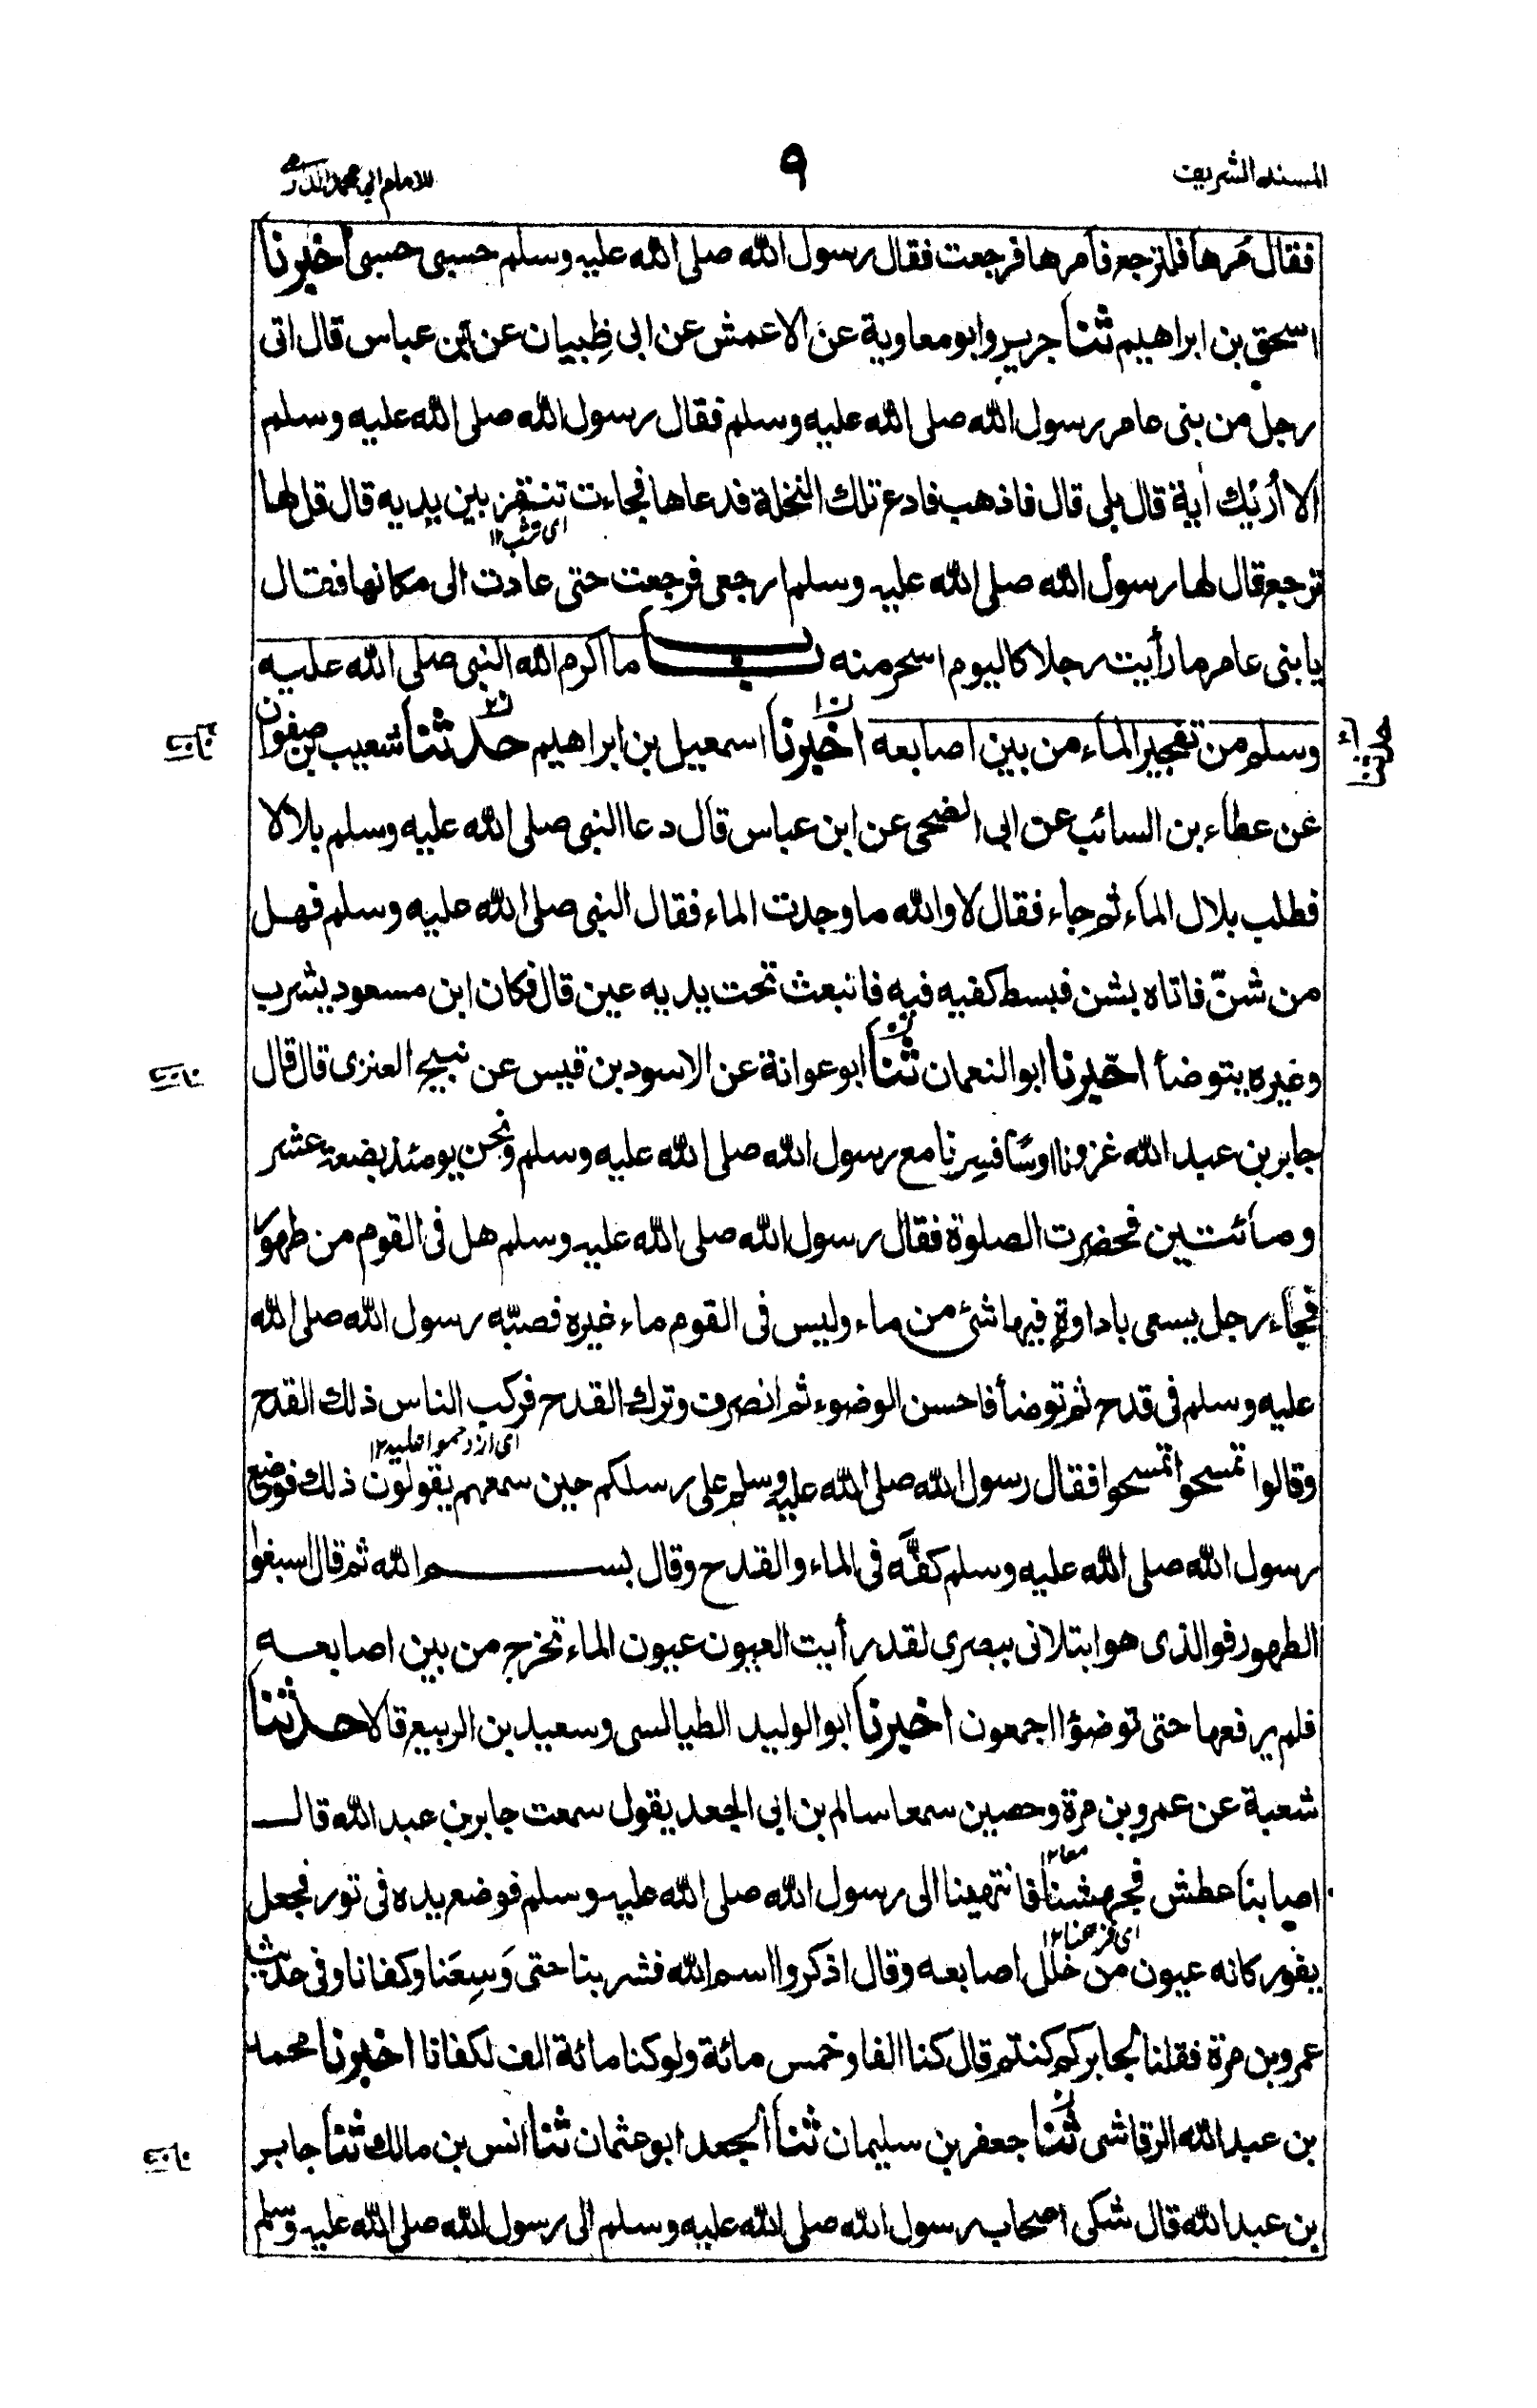 المسند الشريف
٩
للامام ابي محمد الدارمي
فقال مُرها فلترجع فأمرها فرجعت فقال رسول الله صلى الله عليه وسلم حسبى حسبى اخبرنا
اسحق بن ابراهيم ثنا جرير وابو معاوية عن الاعمش عن ابى ظِبيان عن ابن عباس قال اتى
رجل من بنى عامر رسول الله صلى الله عليه وسلم فقال رسول الله صلى الله عليه وسلم
الا أُرئيك أية قال بلى قال فاذهب فادع تلك النخلة فدعاها فجاءت تنقز بين يديه قال قل لها
اى تثب ١٢
ترجع قال لها رسول الله صلى الله عليه وسلم ارجعى فرجعت حتى عادت الى مكانها فقال
يا بنى عامر ما رأيت رجلا كاليوم اسحر منه باب ما اكرم الله النبى صلى الله عليه
وسلم من تفجير الماء من بين اصابعه اخبرنا اسمعيل بن ابراهيم حدثنا شعيب بن صفوان
عن عطاء بن السائب عن ابى الضحى عن ابن عباس قال دعا النبى صلى الله عليه وسلم بلالا
فطلب بلال الماء ثم جاء فقال لا والله ما وجدت الماء فقال النبى صلى الله عليه وسلم فهل
من شنّ فاتاه بشن فبسط كفيه فيه فانبعث تحت يديه عين قال فكان ابن مسعود يشرب
وغيره يتوضأ اخبرنا ابو النعمان ثنا ابو عوانة عن الاسود بن قيس عن نبيح العنزى قال قال
جابر بن عبد الله غزونا او سافرنا مع رسول الله صلى الله عليه وسلم ونحن يومئذ بضعة عشر
ومائتين فحضرت الصلوة فقال رسول الله صلى الله عليه وسلم هل فى القوم من طهور
فجاء رجل يسعى باداوة فيها شئ من ماء وليس فى القوم ماء غيره فصبّه رسول الله صلى الله
عليه وسلم فى قدح ثم توضأ فاحسن الوضوء ثم انصرف وترك القدح فركب الناس ذلك القدح
اى ازدحموا عليه ١٢
وقالوا تمسحوا تمسحوا فقال رسول الله صلى الله عليه وسلم على رسلكم حين سمعهم يقولون ذلك فوضع
رسول الله صلى الله عليه وسلم كفَّه فى الماء والقدح وقال بسم الله ثم قال اسبغوا
الطهور فو الذى هو ابتلانى ببصرى لقد رأيت العيون عيون الماء تخرج من بين اصابعه
فلم يرفعها حتى توضؤا اجمعون اخبرنا ابو الوليد الطيالسى وسعيد بن الربيع قالا حدثنا
شعبة عن عمرو بن مرة وحصين سمعا سالم بن ابى الجعد يقول سمعت جابر بن عبد الله قال
اصابنا عطش فجهشنا فانتهينا الى رسول الله صلى الله عليه وسلم فوضع يده فى تور فجعل
يفور كانه عيون من خلل اصابعه وقال اذكروا اسم الله فشربنا حتى وَسِعَنا وكفانا وفى حديث
عمرو بن مرة فقلنا لجابر كم كنتم قال كنا الفا وخمس مائة ولو كنا مائة الف لكفانا اخبرنا محمد
بن عبد الله الرقاشى ثنا جعفر بن سليمان ثنا الجعد ابو عثمان ثنا انس بن مالك ثنا جابر
بن عبد الله قال شكى اصحاب رسول الله صلى الله عليه وسلم الى رسول الله صلى الله عليه وسلم